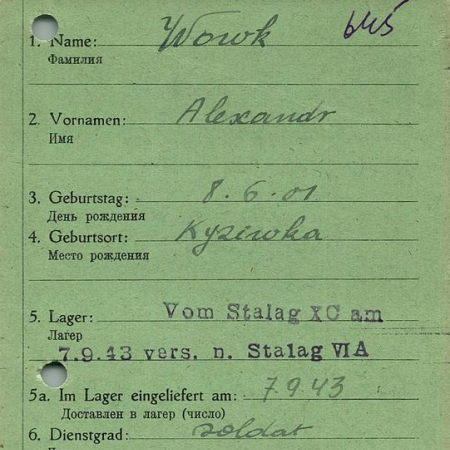 645
1. Name: Wowk
Фамилия
2. Vornamen: Alexandr
Имя
3. Geburtstag: 8.6.01
День рождения
4. Geburtsort: Kyziwka
Место рождения
5. Lager: Vom Stalag XC am
Лагер
7.9.43 vers. n. Stalag VIA
5a. Im Lager eingeliefert am: 7.9.43
Доставлен в лагер (число)
6. Dienstgrad: soldat